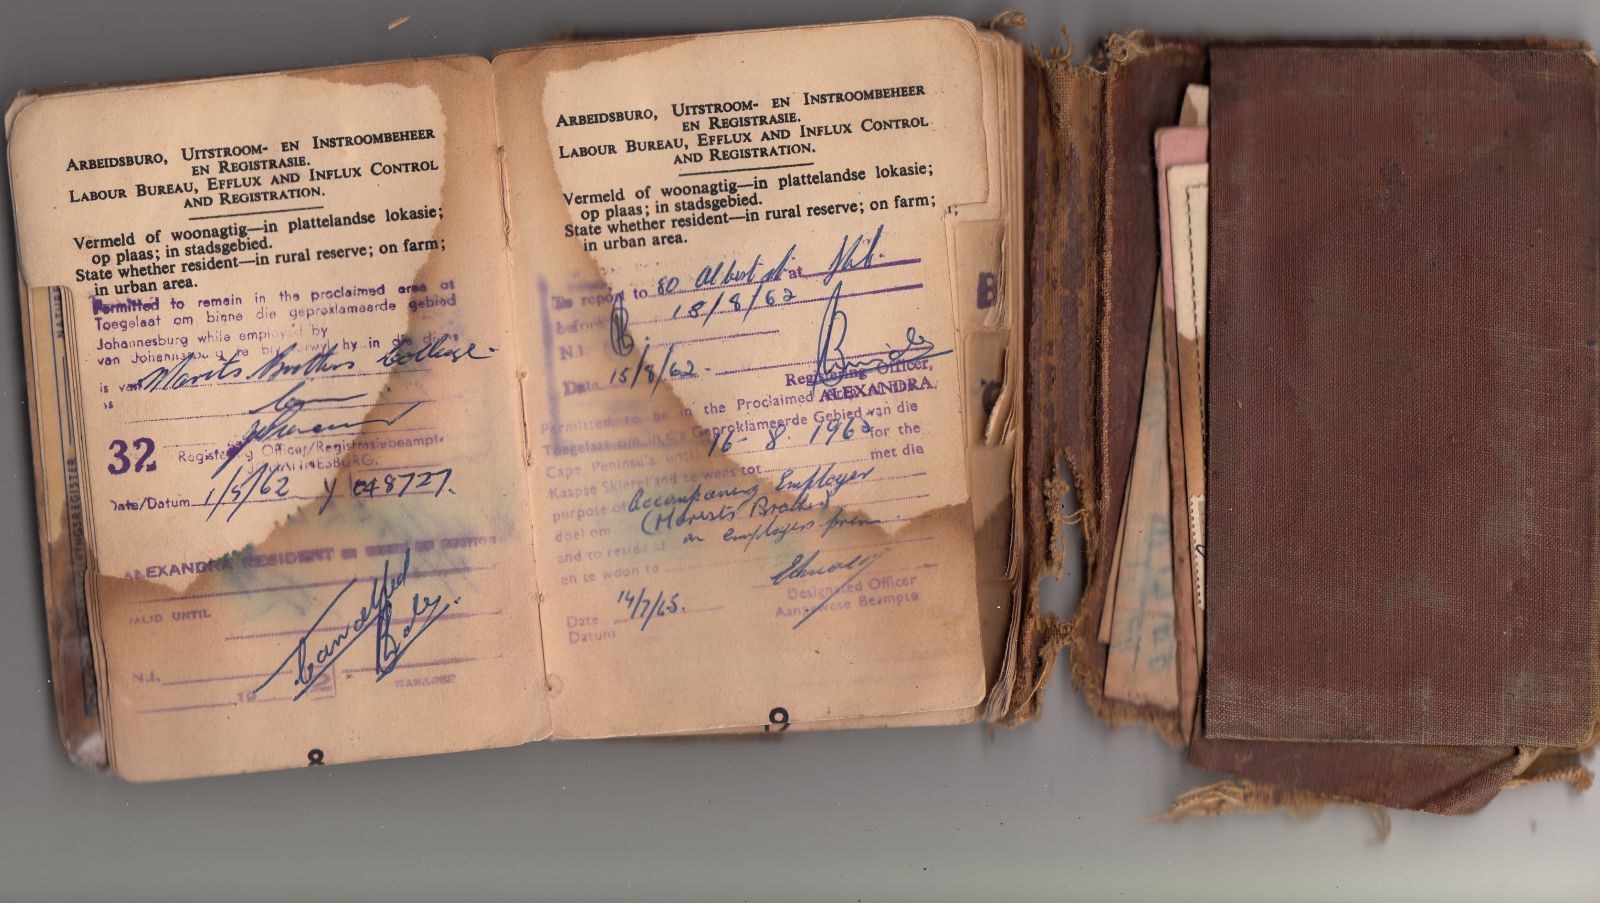 ARBEIDSBURO, UITSTROOM- EN INSTROOMBEHEER
EN REGISTRASIE.
LABOUR BUREAU, EFFLUX AND INFLUX CONTROL
AND REGISTRATION.
Vermeld of woonagtig—in plattelandse lokasie;
op plaas; in stadsgebied.
State whether resident—in rural reserve; on farm;
in urban area.
Permitted to remain in the proclaimed area of
Toegelaat om binne die geproklameerde gebied
Johannesburg while employed by
van Johannesburg te bly terwyl hy in die diens
is van Marists Brothers College
is
32
Registering Officer/Registrasiebeampte
JOHANNESBURG.
Date/Datum 1/5/62 Y 048727.
ALEXANDRA RESIDENT
VALID UNTIL
Cancelled
N.I.
19 2
MANAGER
8
ARBEIDSBURO, UITSTROOM- EN INSTROOMBEHEER
EN REGISTRASIE.
LABOUR BUREAU, EFFLUX AND INFLUX CONTROL
AND REGISTRATION.
Vermeld of woonagtig—in plattelandse lokasie;
op plaas; in stadsgebied.
State whether resident—in rural reserve; on farm;
in urban area.
To report to 80 Albert st at Jhb.
before 18/8/62
N.I.
Date 15/8/62.
Registering Officer,
ALEXANDRA.
Permitted to be in the Proclaimed
Toegelaat om in die Geproklameerde Gebied van die
Cape Peninsula until 16-8-1962 for the
Kaapse Skiereiland te wees tot met die
purpose of Accompaning Employer
doel om (Marists Brothers)
and to reside at on employers prem
en te woon te
Designated Officer
Aangewese Beampte
Date 14/7/65.
Datum
9
B
KINGSREGISTER